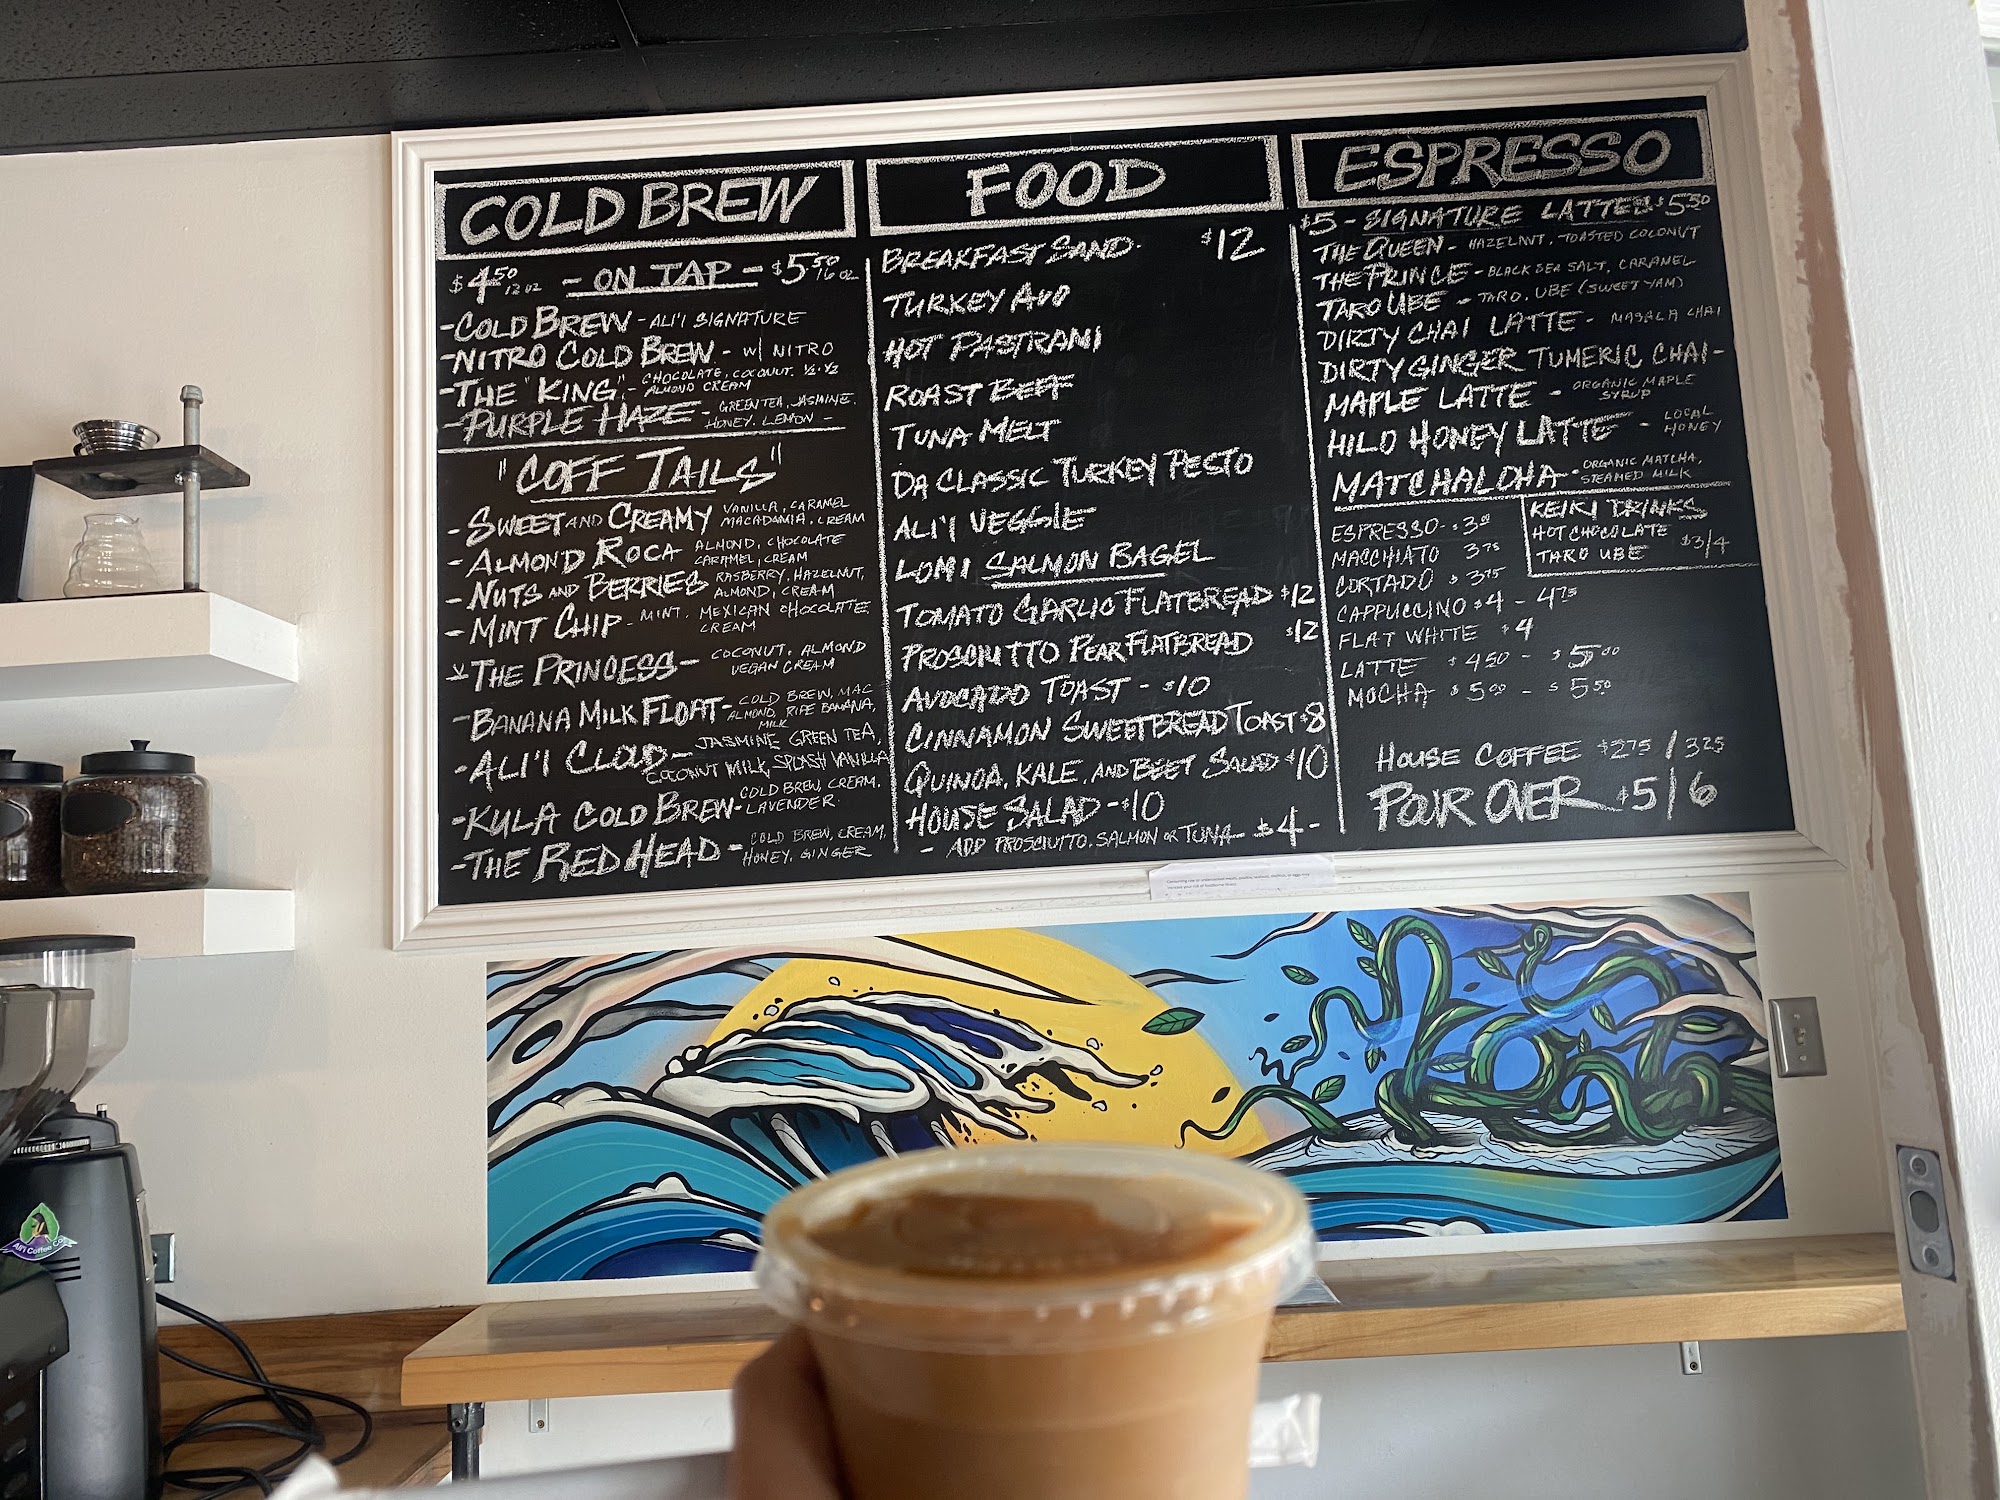 COLD BREW
$4.50 12 oz - ON TAP - $5.50 16 oz
- COLD BREW - ALI'I SIGNATURE
- NITRO COLD BREW - W/ NITRO
- THE "KING" - CHOCOLATE, COCONUT, ½ · ½
ALMOND CREAM
- PURPLE HAZE - GREEN TEA, JASMINE,
HONEY, LEMON -
"COFF TAILS"
- SWEET AND CREAMY VANILLA, CARAMEL
MACADAMIA, CREAM
- ALMOND ROCA ALMOND, CHOCOLATE
CARAMEL, CREAM
- NUTS AND BERRIES RASBERRY, HAZELNUT,
ALMOND, CREAM
- MINT CHIP - MINT, MEXICAN CHOCOLATE
CREAM
THE PRINCESS - COCONUT, ALMOND
VEGAN CREAM
- BANANA MILK FLOAT - COLD BREW, MAC
ALMOND, RIPE BANANA,
MILK
- ALI'I CLOUD - JASMINE GREEN TEA,
COCONUT MILK, SPLASH VANILLA
- KULA COLD BREW - COLD BREW, CREAM,
LAVENDER
- THE RED HEAD - COLD BREW, CREAM,
HONEY, GINGER
FOOD
BREAKFAST SAND. $12
TURKEY AVO
HOT PASTRAMI
ROAST BEEF
TUNA MELT
DA CLASSIC TURKEY PESTO
ALI'I VEGGIE
LOMI SALMON BAGEL
TOMATO GARLIC FLATBREAD $12
PROSCIUTTO PEAR FLATBREAD $12
AVOCADO TOAST - $10
CINNAMON SWEETBREAD TOAST $8
QUINOA, KALE, AND BEET SALAD $10
HOUSE SALAD - $10
- ADD PROSCIUTTO, SALMON OR TUNA - $4 -
ESPRESSO
$5 - SIGNATURE LATTES $5.50
THE QUEEN - HAZELNUT, TOASTED COCONUT
THE PRINCE - BLACK SEA SALT, CARAMEL
TARO UBE - TARO, UBE (SWEET YAM)
DIRTY CHAI LATTE - MASALA CHAI
DIRTY GINGER TUMERIC CHAI -
MAPLE LATTE - ORGANIC MAPLE
SYRUP
HILO HONEY LATTE - LOCAL
HONEY
MATCHALOHA - ORGANIC MATCHA,
STEAMED MILK
ESPRESSO - $3.00
MACCHIATO 3.75
CORTADO $3.75
CAPPUCCINO $4 - 4.75
FLAT WHITE $4
LATTE $4.50 - $5.00
MOCHA $5.00 - $5.50
KEIKI DRINKS
HOT CHOCOLATE
TARO UBE $3/4
HOUSE COFFEE $2.75 / 3.25
POUR OVER $5/6
Ali'i Coffee Co.